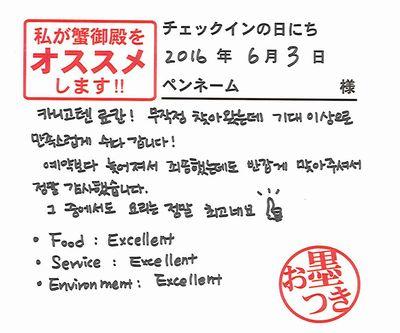 私が蟹御殿を
オススメ
します!!
チェックインの日にち
2016 年 6 月 3 日
ペンネーム 様
카니고텐 료칸! 무작정 찾아왔는데 기대 이상으로
만족스럽게 쉬다 갑니다!
예약보다 늦어져서 죄송했는데도 반갑게 맞아주셔서
정말 감사했습니다.
그 중에서도 요리는 정말 최고네요
• Food : Excellent
• Service : Excellent
• Environment : Excellent
お墨つき